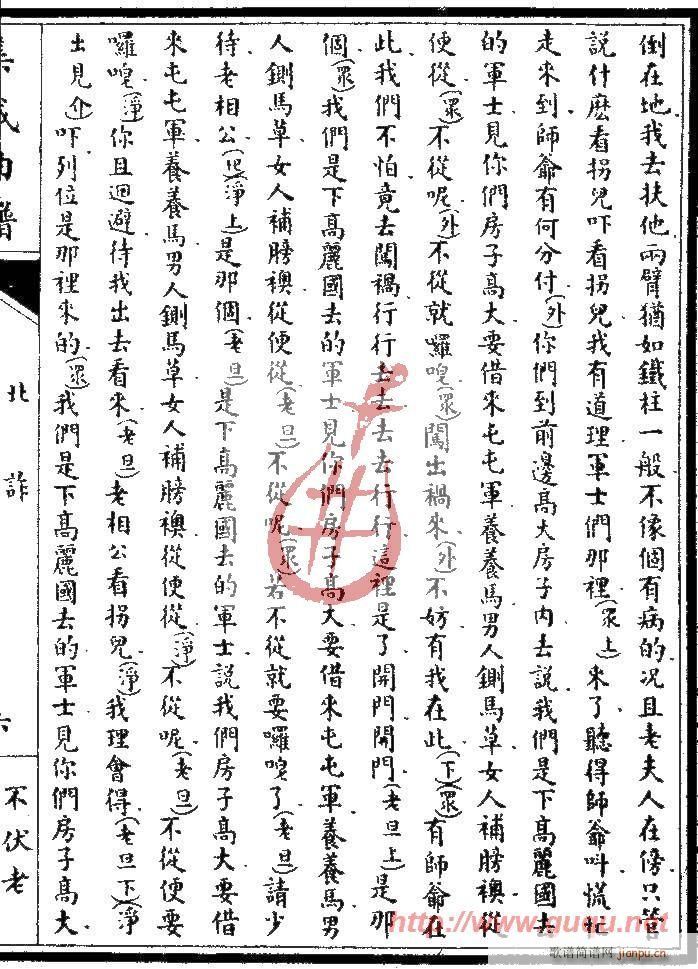 倒在地我去扶他兩臂猶如鐵柱一般不像個有病的况且老夫人在傍只管
說什麽看拐兒吓看拐兒我有道理軍士們那裡(眾上)來了聽得師爺叫慌忙
走來到師爺有何分付(外)你們到前邊高大房子内去說我們是下高麗國去
的軍士見你們房子高大要借來屯屯軍養養馬男人鍘馬草女人補膀襖從
便從(眾)不從呢(外)不從就囉唣(眾)闖出禍來(外)不妨有我在此(下)(眾)有師爺在
此我們不怕竟去闖禍行行去去去去行行這裡是了開門開門(老旦上)是那
個(眾)我們是下高麗國去的軍士見你們房子高大要借來屯屯軍養養馬男
人鍘馬草女人補膀襖從便從(老旦)不從呢(眾)若不從就要囉唣了(老旦)請少
待老相公(淨上)是那個(老旦)是下高麗國去的軍士說我們房子高大要借
來屯屯軍養養馬男人鍘馬草女人補膀襖從便從(淨)不從呢(老旦)不從便要
囉唣(淨)你且迴避待我出去看來(老旦)老相公看拐兒(淨)我理會得(老旦下)(淨
出見介)吓列位是那裡來的(眾)我們是下高麗國去的軍士見你們房子高大
集成曲譜
北詐
六
不伏老
http://www.guqu.net
歌谱简谱网
jianpu.cn